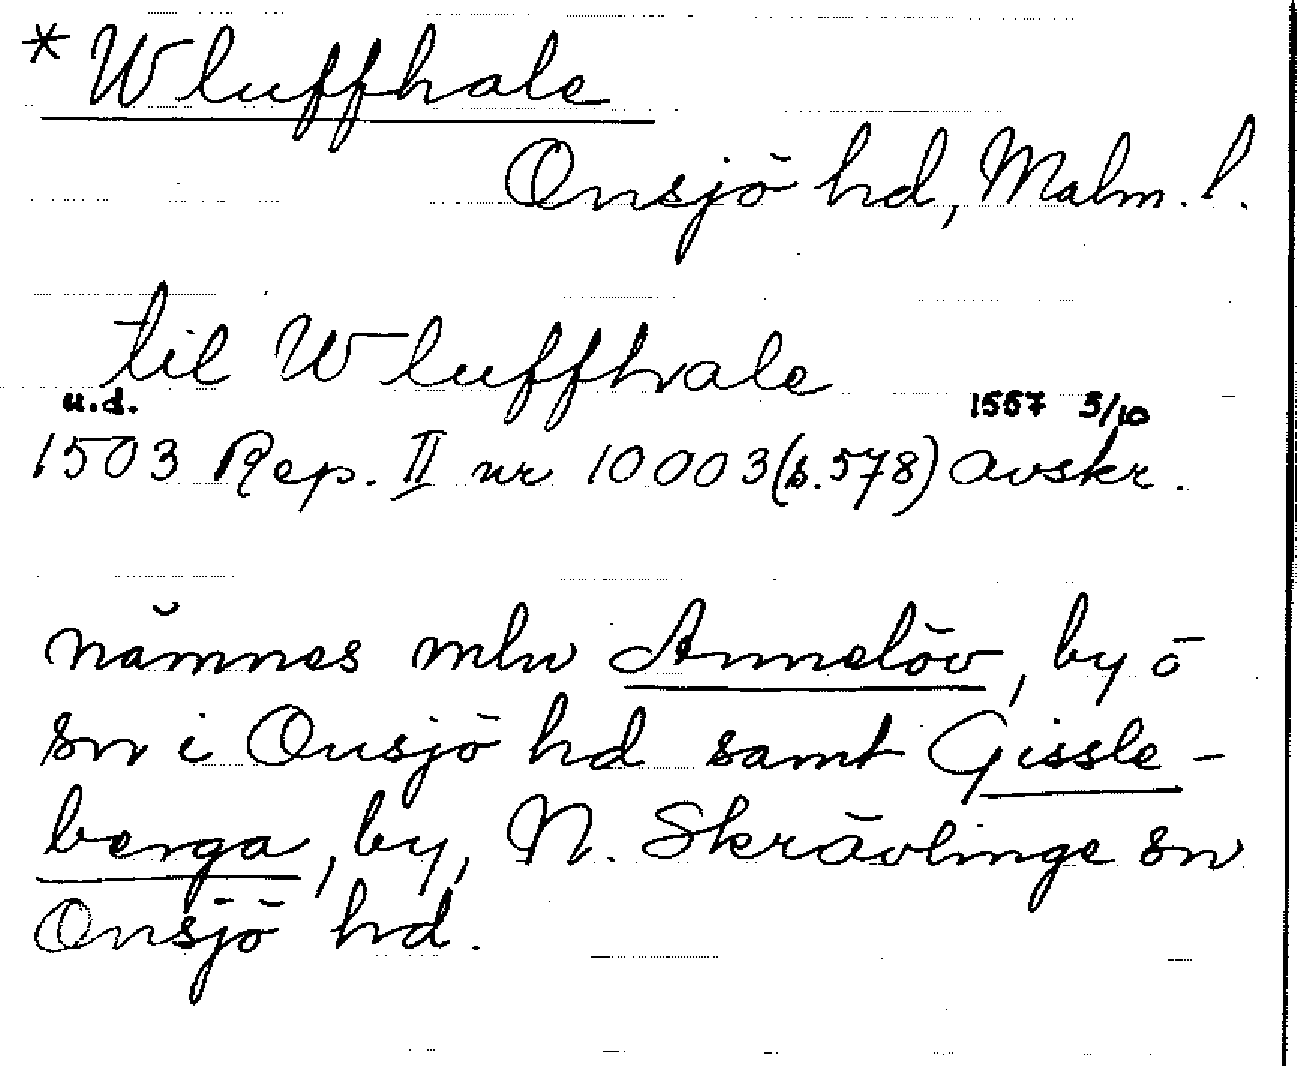 * Wluffhale
Onsjö hd, Malm. l.
til Wluffhale
u.d. 1557 5/10
1503 Rep. II nr 10003 (s. 578) avskr.
nämnes mln Annelöv, by ö
sn i Onsjö hd samt Gissle-
berga, by, N. Skrävlinge sn
Onsjö hd.